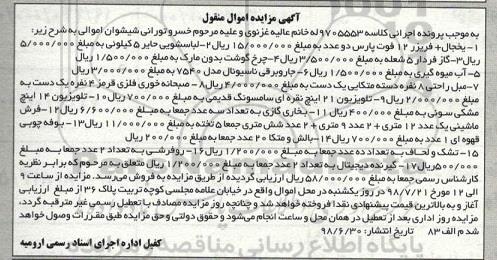 آگهی مزایده اموال منقول
به موجب پرونده اجرائی کلاسه ۹۷۰۵۵۵۳ له خانم عالیه غزنوی و علیه مرحوم خسرو تورانی شیشوان اموالی به شرح زیر:
۱-یخجال+ فریزر ۱۲ فوت پارس دو عدد به مبلغ ۱۵/۰۰۰/۰۰۰ ریال ۲-لباسشویی حایر ۵ کیلونی به مبلغ ۵/۰۰۰/۰۰۰
ریال۳-گاز فردار ۵ شعله به مبلغ ۳/۵۰۰/۰۰۰ریال۴-چرخ گوشت بدون مارک به مبلغ ۱/۵۰۰/۰۰۰ ریال
۵-آب میوه گیری به مبلغ ۱/۵۰۰/۰۰۰ ریال ۶-جاروبرقی ناسیونال مدل ۷۵۴۰ به مبلغ ۳/۰۰۰/۰۰۰ریال
۷-مبل راحتی ۸ نفره دسته متکایی یک دست به مبلغ ۴/۰۰۰/۰۰۰ریال ۸-صبحانه خوری فلزی قرمز ۴ نفره یک دست به
مبلغ ۲/۰۰۰/۰۰۰ ریال ۹-تلویزیون ۲۱ اینچ نقره ای سامسونگ قدیمی به مبلغ۷۰۰/۰۰۰ ریال ۱۰-تلویزیون ۱۴ اینچ
مشکی سونی به مبلغ ۴۰۰/۰۰۰ ریال ۱۱-بخاری گازی به تعداد سه عدد جمعا به مبلغ ۶/۶۰۰/۰۰۰ ریال ۱۲-فرش
ماشینی یک عدد ۱۲ متری + ۲ عدد ۹ متری + ۲ عدد شش متری جمعا ۵ تخته به مبلغ ۱۱/۰۰۰/۰۰۰ ریال۱۳-بوفه چوبی
قهوه ای ۱ عدد به مبلغ ۷۰۰/۰۰۰ ریال۱۴-بالش و متکا ۲۰ عدد جمعا به مبلغ ۲۰۰/۰۰۰ ریال
۱۵-تشک و لحاف به تعداد ده عدد جمعا به مبلغ ۱/۲۰۰/۰۰۰ ریال۱۶-روفرشی به تعداد ۲ عدد جمعا به مبلغ
۵۰۰/۰۰۰ریال۱۷-گیرنده دیجیتال به تعداد ۲ عدد جمعا به مبلغ ۱/۲۰۰/۰۰۰ ریال متعلق به مرحوم که برابر نظریه
کارشناس رسمی جمعا به مبلغ ۵۸/۰۰۰/۰۰۰ ریال ارزیابی گردیده از طریق مزایده به فروش می‌رسد. مزایده از ساعت ۹
الی ۱۲ مورخ ۹۸/۷/۲۱ در روز یکشنبه در محل اموال واقع در خیابان علامه مجلسی کوچه تربیت پلاک ۳۶ از مبلغ ارزیابی
آغاز و به بالاترین قیمت پیشنهادی نقدا فروخته خواهد شد و چنانچه روز مزایده مصادف با تعطیل رسمی غیر مترقبه گردد،
مزایده روز اداری بعد از تعطیل در همان محل و ساعت انجام می‌شود و حقوق دولتی و حق مزایده طبق مقررات وصول خواهد
شد م الف ۸۳ تاریخ انتشار: ۹۸/۶/۳۰
کفیل اداره اجرای اسناد رسمی ارومیه
پایگاه اطلاع رسانی مناقصه و مزایده